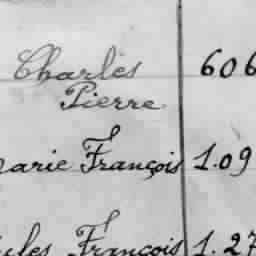 Charles 606
Pierre
arie François 1.09
ules François 1.27